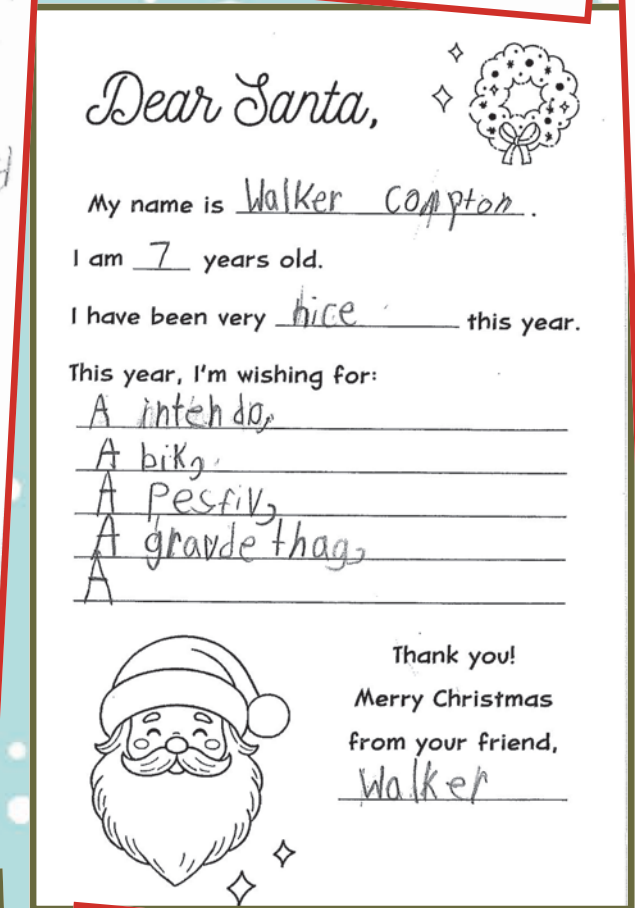 Dear Santa,
My name is Walker Compton.
I am 7 years old.
I have been very nice this year.
This year, I'm wishing for:
A intendo,
A bik,
A Pesfiv,
A gravde thag,
A
Thank you!
Merry Christmas
from your friend,
Walker